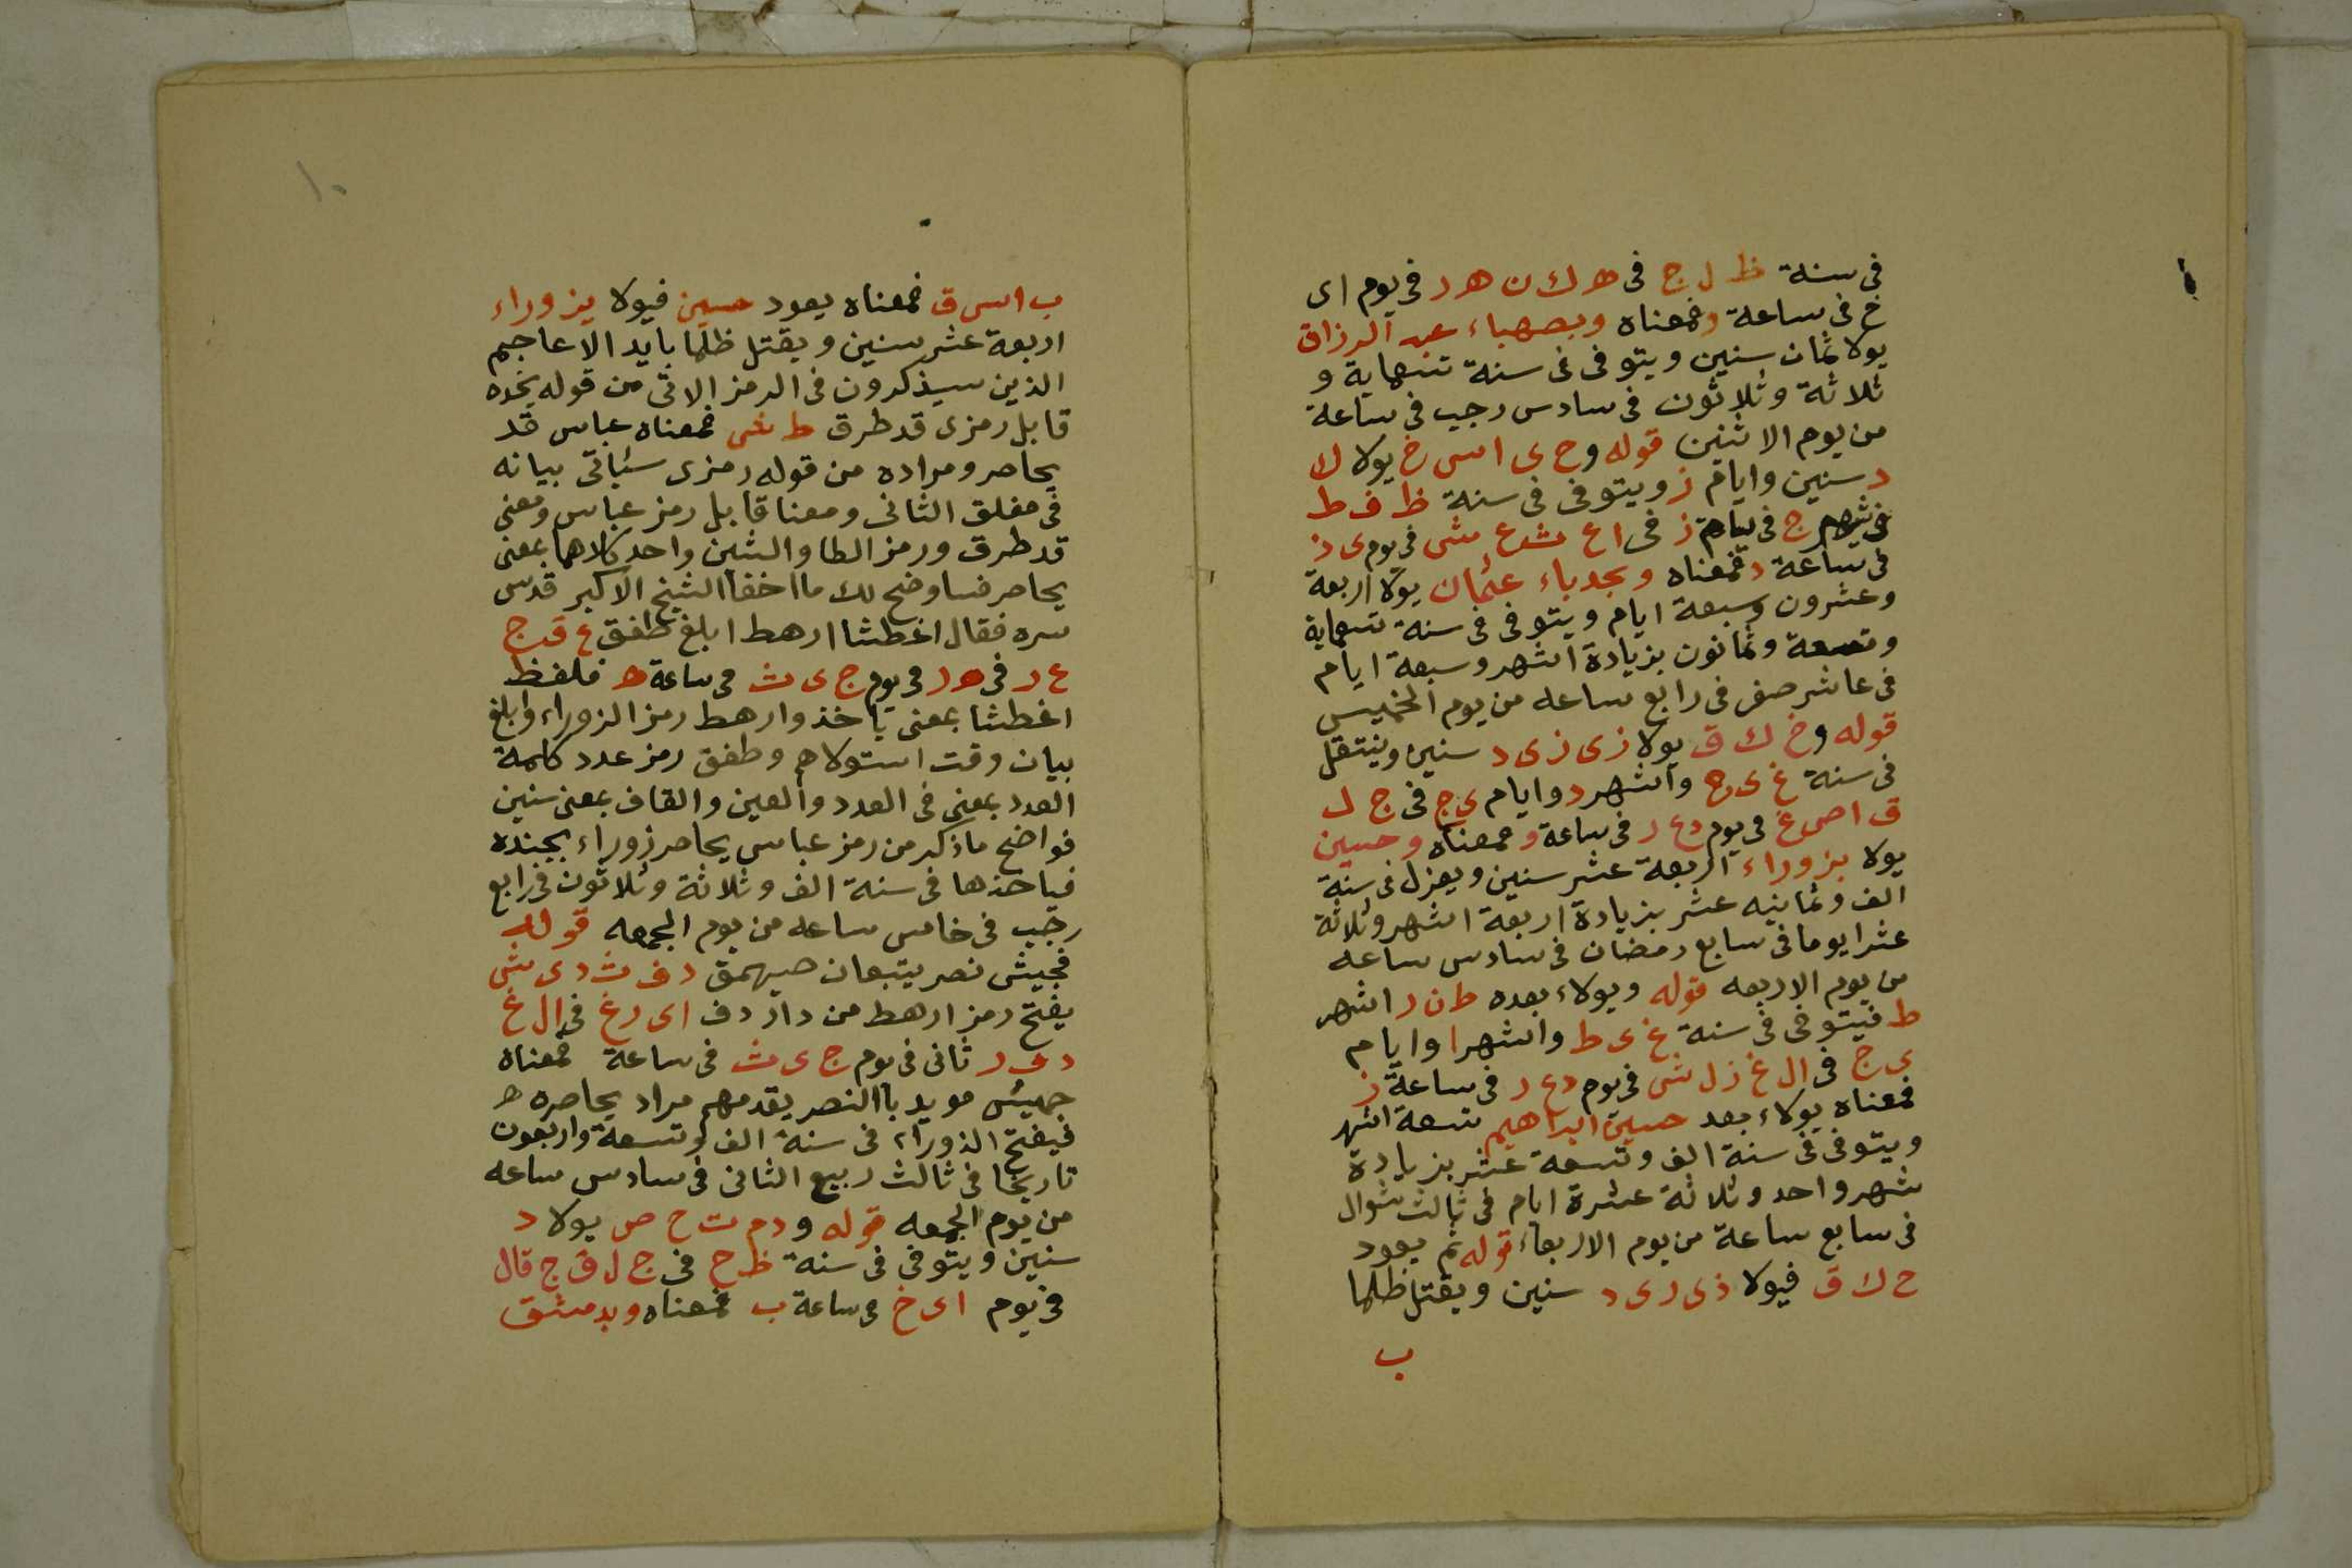 فى سنة ظ ل ج فى ه ك ن ه د فى يوم اى
خ فى ساعة د فمعناه وبصهباء عبد الرزاق
يولا ثمان سنين ويتوفى فى سنة تسعماية و
ثلاثة وثلاثون فى سادس رجب فى ساعة
من يوم الاثنين قوله وح ى اس خ يولا ك
د سنين وايام ز ويتوفى فى سنة ظ ف ط
ج فى ز فى اع شع ش فى يوم ى ذ
فى ساعة د فمعناه وبجدباء عثمان يولا اربعة
وعشرون وسبعة ايام ويتوفى فى سنة تسعماية
وتسعة وثمانون بزيادة اشهر وسبعة ايام
فى عاشر صفر فى رابع ساعه من يوم الخميس
قوله وخ ك ق يولا زى زى د سنين وينتقل
فى سنة غ ى ح واشهر د وايام ى ج فى ج ل
ق اص غ فى يوم دع ر فى ساعة و فمعناه وحسين
يولا بزوراء اربعة عشر سنين ويعزل فى سنة
الف وثمانيه عشر بزيادة اربعة اشهر وثلاثة
عشرا يوما فى سابع رمضان فى سادس ساعه
من يوم الاربعه قوله ويولاء بعده ط ن ر اشهر
ط فيتوفى فى سنة غ ى ط واشهر ا وايام
ى ج فى ال غ ز ل ش فى يوم دع ر فى ساعة ز
فمعناه يولاء بعد حسين ابراهيم تسعة اشهر
ويتوفى فى سنة الف وتسعة عشر بزيادة
شهر واحد وثلاثة عشرة ايام فى ثالث شوال
فى سابع ساعة من يوم الاربعاء قوله ثم يعود
ح ك ق فيولا ذى رى د سنين ويقتل ظلما
ب
١٠
ب اس ق فمعناه يعود حسين فيولا بزوراء
اربعة عشر سنين ويقتل ظلما بايد الاعاجم
الذين سيذكرون فى الرمز الاتى من قوله بجنده
قابل رمزى قد طرق ط ش فمعناه عباس قد
يحاصر ومراده من قوله رمزى سئياتى بيانه
فى مغلق الثانى ومعنا قابل رمز عباس ومعنى
قد طرق ورمز الطا والشين واحد كلاهما بمعنى
يحاصر فساوضح لك ما اخفا الشيخ الاكبر قدس
سره فقال اغطشا ارهط ابلغ طفق ع ق ج
ع ر فى ه ر فى يوم ج ى ث فى ساعة ه فلفظ
اغطشا بمعنى ياخذ وارهط رمز الزوراء وابلغ
بيان وقت استولاه وطفق رمز عدد كلمة
العدد بمعنى فى العدد والعين والقاف بمعنى سنين
فواضح ماذكر من رمز عباس يحاصر زوراء بجنده
فياخذها فى سنة الف وثلاثة وثلاثون فى رابع
رجب فى خامس ساعه من يوم الجمعه قوله
فجيش نصر يتبعان صيهمق د ف ث د ى ش
يفتح رمز ارهط من دار دف اى رغ فى ال غ
د ى ر ثانى فى يوم ج ى ث فى ساعة فمعناه
جهيش مويد باالنصر يقدمهم مراد يحاصره ه
فيفتح الذوراء فى سنة الف وتسعة واربعون
تاريخا فى ثالث ربيع الثانى فى سادس ساعه
من يوم الجمعه قوله ودم ت ح ص يولا د
سنين ويتوفى فى سنة ظ ح فى ج ل ق ج قال
فى يوم اى خ فى ساعة ب فمعناه وبدمشق